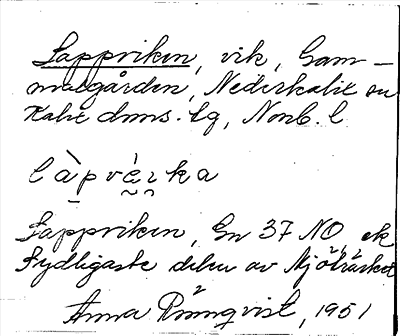 Lappviken, vik, Gam-
malgården, Nederkalix sn
Kalix dnms. lg, Nonb. l
làpvèıka
Lappviken, Gn 37 NO, ek
Sydligaste delen av Mjöträsket
Anna Rönnqvist, 1951